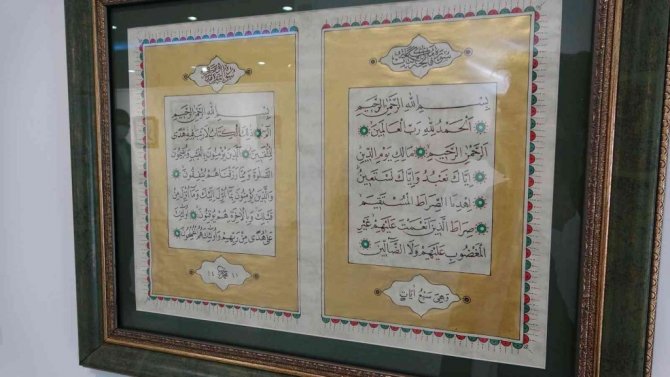 بِسْمِ اللهِ الرَّحْمٰنِ الرَّحِيمِ
اَلْحَمْدُ لِلّٰهِ رَبِّ الْعَالَمِينَ
اَلرَّحْمٰنِ الرَّحِيمِ مَالِكِ يَوْمِ الدِّينِ
اِيَّاكَ نَعْبُدُ وَاِيَّاكَ نَسْتَعِينُ
اِهْدِنَا الصِّرَاطَ الْمُسْتَقِيمَ
صِرَاطَ الَّذِينَ اَنْعَمْتَ عَلَيْهِمْ غَيْرِ
الْمَغْضُوبِ عَلَيْهِمْ وَلَا الضَّالِّينَ
وَهِيَ سَبْعُ اٰيَاتٍ
بِسْمِ اللهِ الرَّحْمٰنِ الرَّحِيمِ
الٓمٓ ذٰلِكَ الْكِتَابُ لَا رَيْبَ فِيهِ هُدًى
لِلْمُتَّقِينَ اَلَّذِينَ يُؤْمِنُونَ بِالْغَيْبِ وَيُقِيمُونَ
الصَّلٰوةَ وَمِمَّا رَزَقْنَاهُمْ يُنْفِقُونَ
وَالَّذِينَ يُؤْمِنُونَ بِمَا اُنْزِلَ اِلَيْكَ وَمَا اُنْزِلَ مِنْ
قَبْلِكَ وَبِالْاٰخِرَةِ هُمْ يُوقِنُونَ اُولٰئِكَ
عَلٰى هُدًى مِنْ رَبِّهِمْ وَاُولٰئِكَ هُمُ الْمُفْلِحُونَ